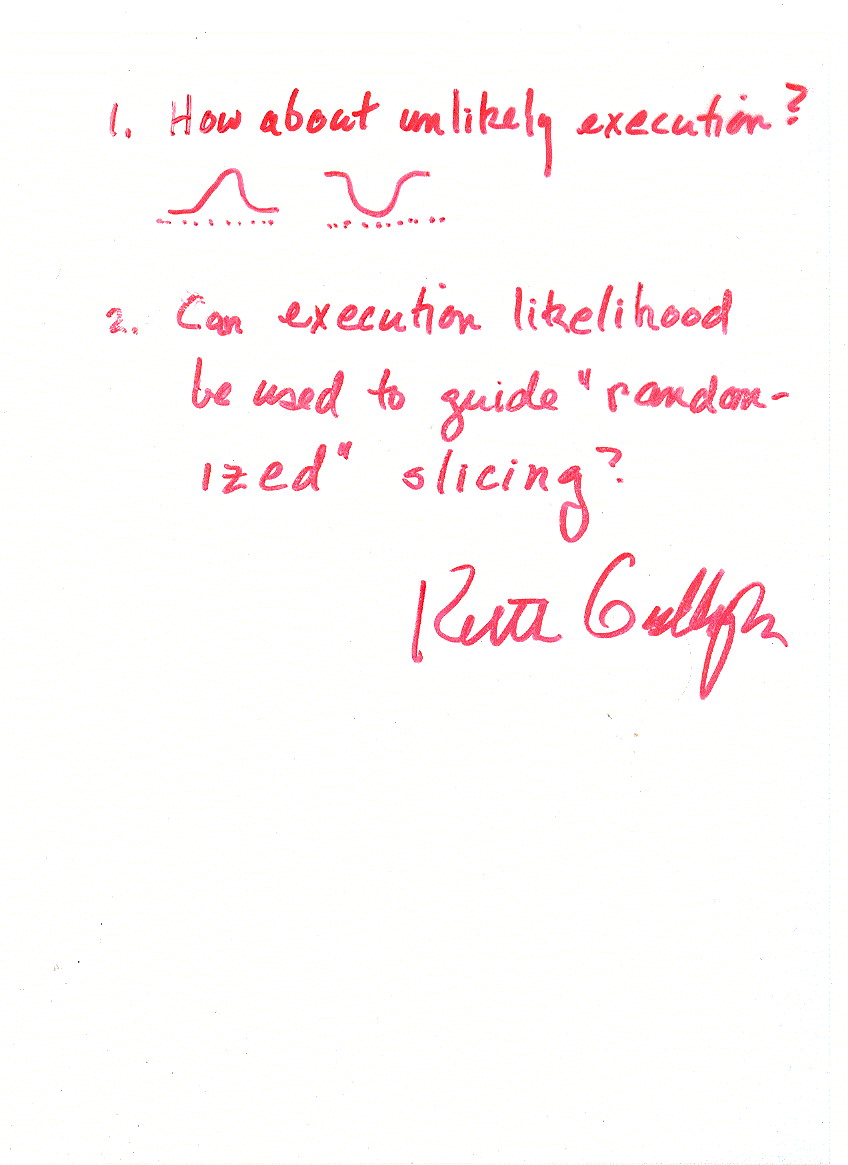 1. How about unlikely execution?
2. Can execution likelihood
be used to guide "random-
ized" slicing?
Keith Gallagher